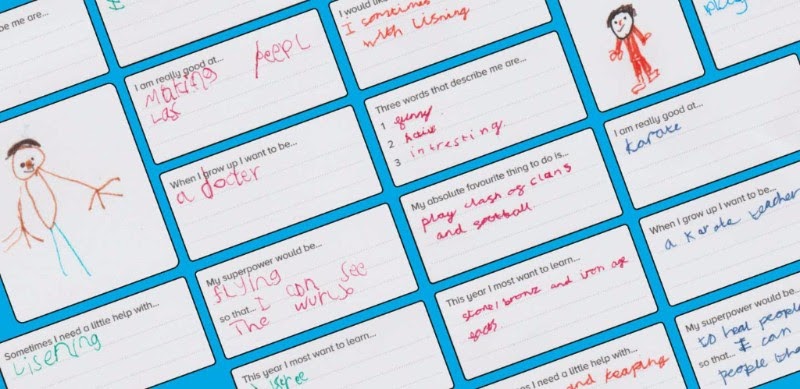 be me are...
I
I am really good at...
Making peepl
Las
When I grow up I want to be...
a docter
My superpower would be...
flying
so that... I can see
The wurld
Sometimes I need a little help with...
Lisening
This year I most want to learn...
I would lik
I somtimes
with lisning
Three words that describe me are...
1 funny
2
3 intresting.
My absolute favourite thing to do is...
play clash of clans
and football.
This year I most want to learn...
stone/bronz and iron age
facts.
es I need a little help with...
and keaping
play
I am really good at...
Karate
When I grow up I want to be...
a Karate teacher
My superpower would be...
to heal people
so that... I can
people tha